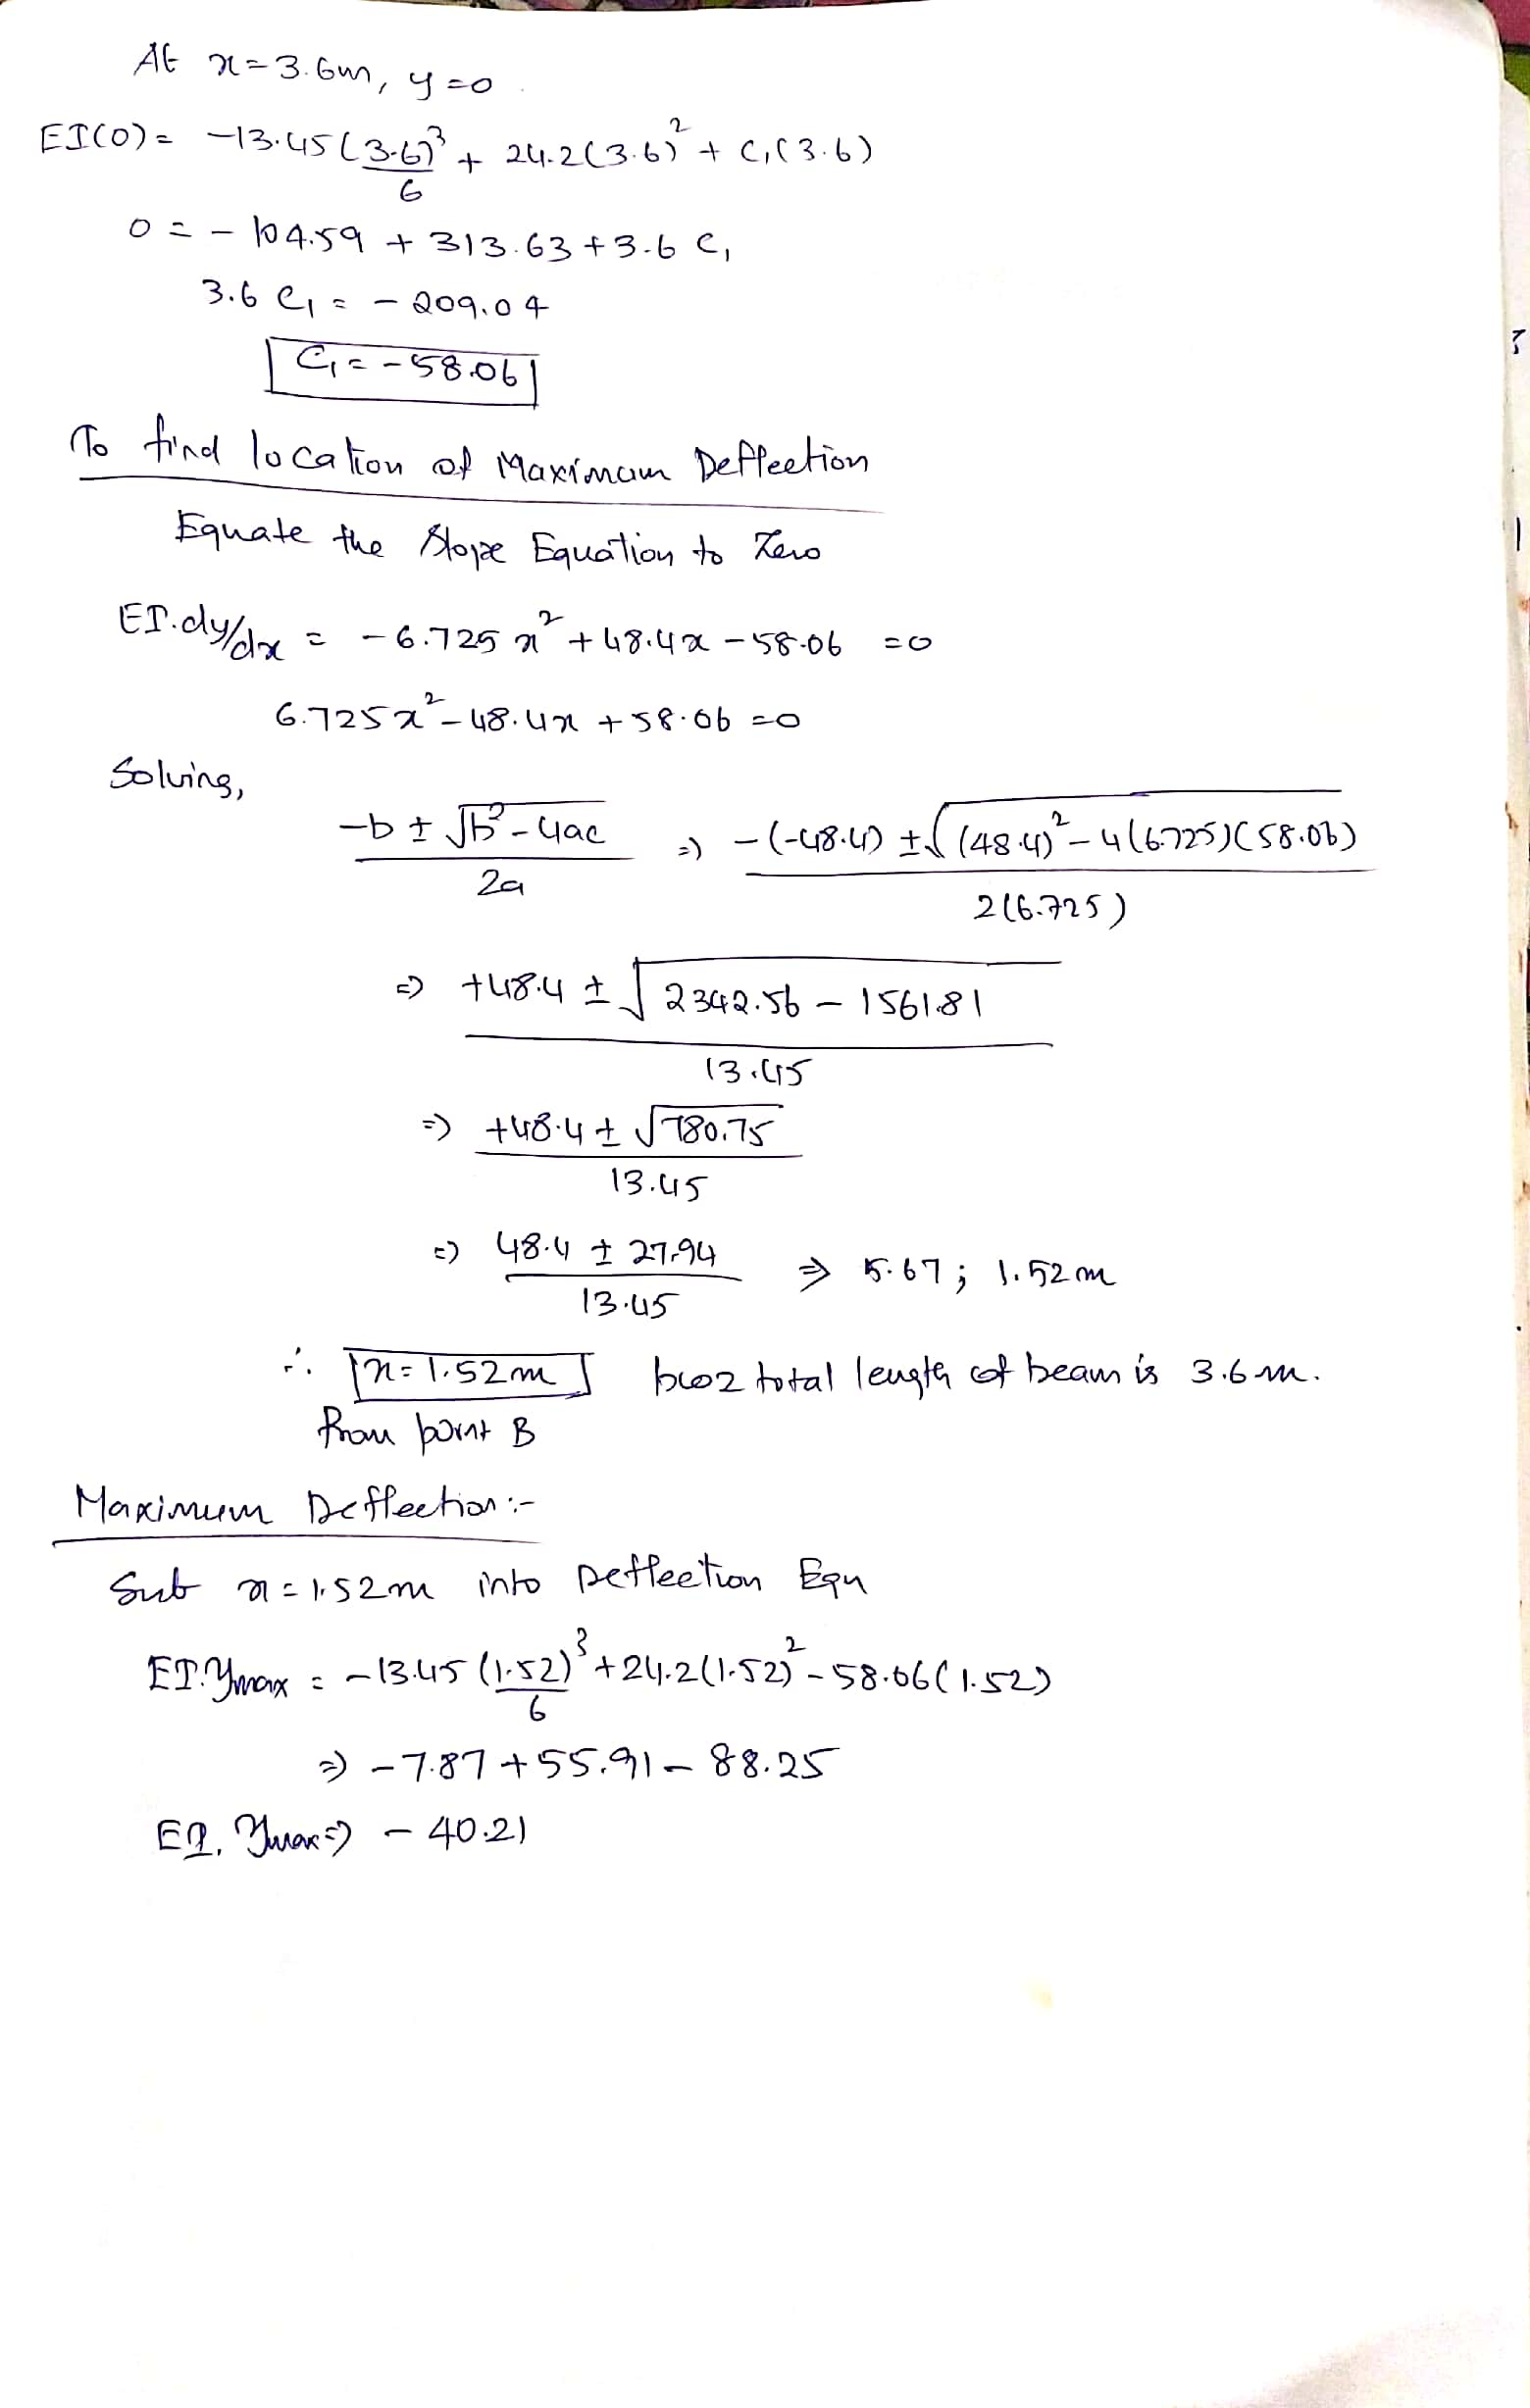 At x=3.6m, y=0
EI(0) = -13.45(3.6)³/6 + 24.2(3.6)² + C₁(3.6)
0 = -104.59 + 313.63 + 3.6 C₁
3.6 C₁ = -209.04
C₁ = -58.06
To find location of Maximum Deflection
Equate the Slope Equation to Zero
EI.dy/dx = -6.725 x² + 48.4x - 58.06 = 0
6.725x² - 48.4x + 58.06 = 0
Solving,
-b ± √b²-4ac / 2a => -(-48.4) ± √(48.4)² - 4(6.725)(58.06) / 2(6.725)
=> +48.4 ± √2342.56 - 1561.81 / 13.45
=> +48.4 ± √780.75 / 13.45
=> 48.4 ± 27.94 / 13.45 => 5.67; 1.52m
∴ x = 1.52m bcoz total length of beam is 3.6m.
from point B
Maximum Deflection:-
Sub x = 1.52m into Deflection Eqn
EI.ymax = -13.45(1.52)³/6 + 24.2(1.52)² - 58.06(1.52)
=> -7.87 + 55.91 - 88.25
EI. ymax => -40.21